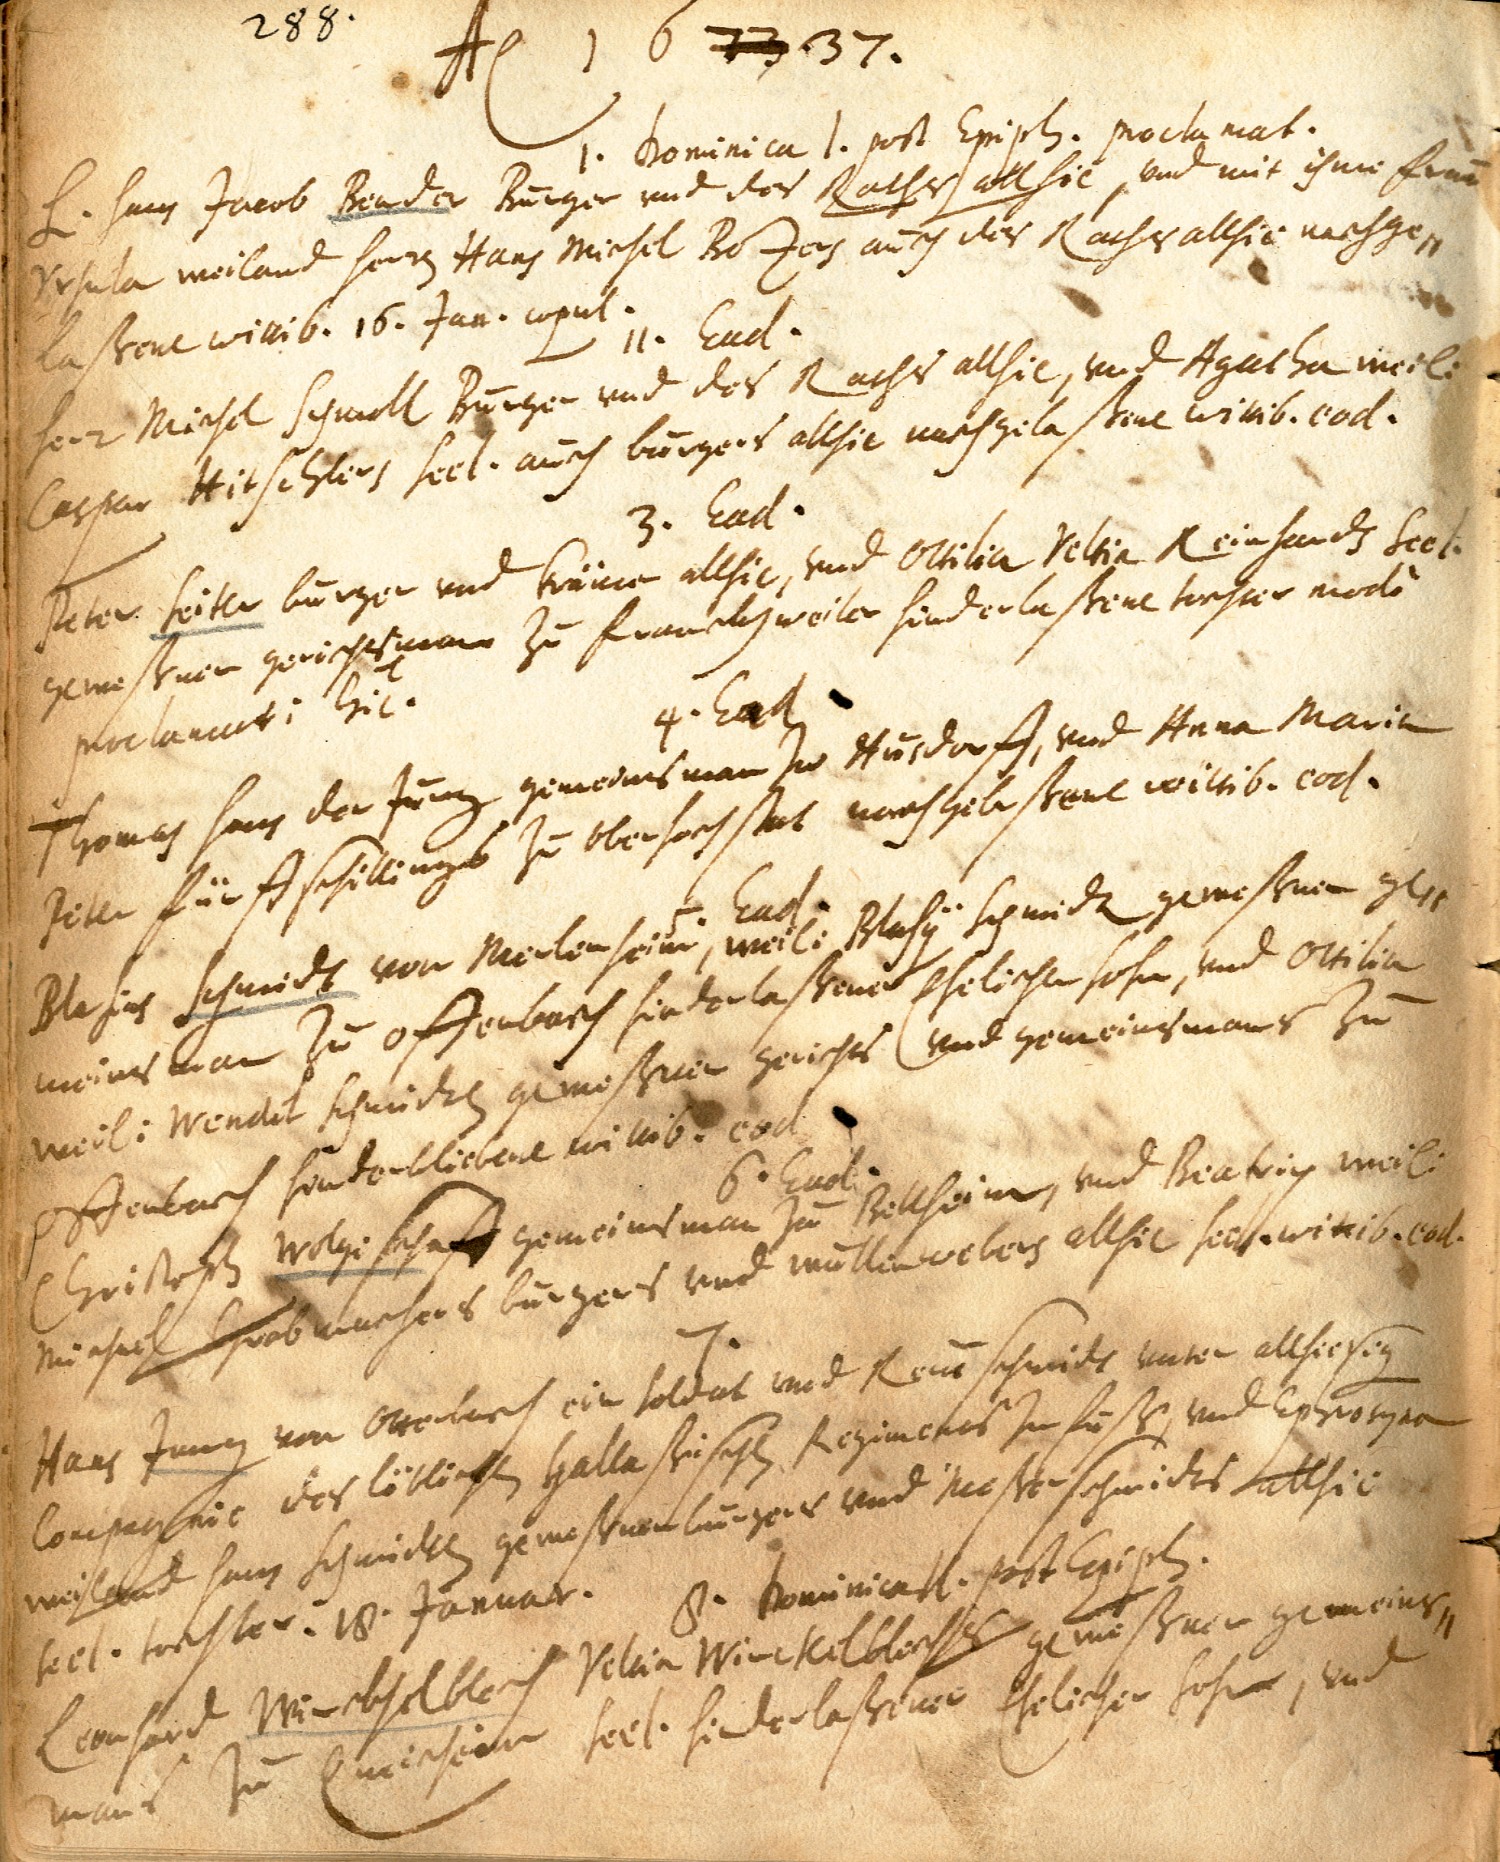 288.
Aō 1 6 73 37.
1. Dominica 1. post Epiph. proclamat.
H. Hans Jacob Bender Burger vnd des Raths allhie, vnd mit ihme fraw
Vrsula weiland herrn Hans Michel auch des Raths allhie nachge„
laßene wittib. 16. Jan. copul.
11. Ead.
Herr Michel Schmoll Burger vnd des Raths allhie, vnd Agatha weil:
Caspar Hitschlers seel. auch burgers allhie nachgelaßene wittib. eod.
3. Ead.
Peter Seiter burger vnd Krämer allhie, vnd Ottilia Veltin Reinhards seel.
geweßnen gerichtsman zu Franckhweiler hinderlaßene tochter modò
proclamati hîc.
4. Ead.
Thomas Hans der Jung gemeinsman zu Nusdorff, vnd Anna Maria
Peter Fünffschillings zu Oberhochstat nachgelaßene wittib. eod.
5. Ead.
Blasius Schmidt von Merlenheim, weil: Blasÿ Schmidts geweßnen ge„
meinsman zu Offenbach hinderlaßener Ehelicher sohn, vnd Ottilia
weil: Wendel Schmidts geweßnen gerichts vnd gemeinsmans zu
Offenbach hinderbliebene wittib. eod.
6. Ead.
Christoph Wolgeschaft gemeinsman zu Bellheim, vnd Beatrix weil:
Michel burgers vnd wullenwebers allhie seel. wittib. eod.
7.
Hans Jung von Otterbach ein soldat vnd schmidt vnter allhiesig
Compagnie des löblichen Hallaßischen Regiments zu fuß, vnd Ephrosyna
weyland Hans Schmidts geweßnen burgers vnd Meßerschmidts allhie
seel. tochter. 18. Januar.
8. Dominica 11. post Epiph.
Leonhard Winckhelblech Veltin Winckelblechs geweßnen gemeins„
mans zu Queicheim seel. hinderlaßener Ehelicher sohn, vnd